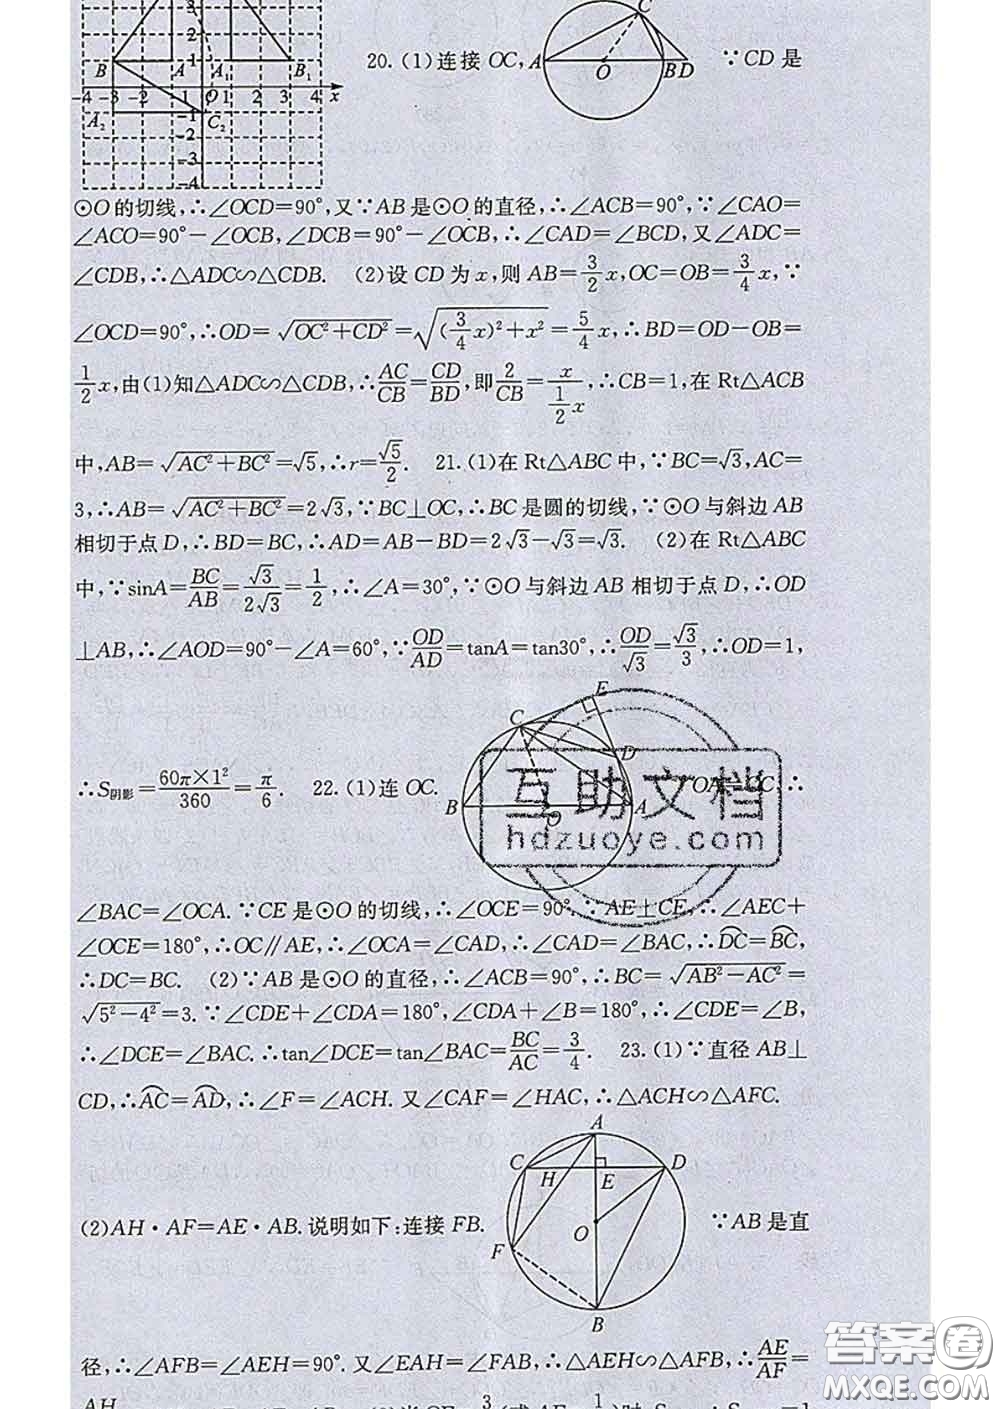 3
2
1
B
A
A₁
B₁
-4 -3 -2 -1 O 1 2 3 4 x
A₂
-1
C₂
-2
-3
-4
20. (1)连接 OC,
C
A
O
B D
∵CD 是
⊙O 的切线,∴∠OCD=90°,又∵AB 是⊙O 的直径,∴∠ACB=90°,∵∠CAO=
∠ACO=90°-∠OCB,∠DCB=90°-∠OCB,∴∠CAD=∠BCD,又∠ADC=
∠CDB,∴△ADC∽△CDB. (2)设 CD 为 x,则 AB=3/2x,OC=OB=3/4x,∵
∠OCD=90°,∴OD=√(OC²+CD²)=√((3/4x)²+x²)=5/4x,∴BD=OD-OB=
1/2x,由(1)知△ADC∽△CDB,∴AC/CB=CD/BD,即2/CB=x/(1/2x),∴CB=1,在 Rt△ACB
中,AB=√(AC²+BC²)=√5,∴r=√5/2. 21. (1)在 Rt△ABC 中,∵BC=√3,AC=
3,∴AB=√(AC²+BC²)=2√3,∵BC⊥OC,∴BC 是圆的切线,∵⊙O 与斜边 AB
相切于点 D,∴BD=BC,∴AD=AB-BD=2√3-√3=√3. (2)在 Rt△ABC
中,∵sinA=BC/AB=√3/2√3=1/2,∴∠A=30°,∵⊙O 与斜边 AB 相切于点 D,∴OD
⊥AB,∴∠AOD=90°-∠A=60°,∵OD/AD=tanA=tan30°,∴OD/√3=√3/3,∴OD=1,
∴S阴影=60π×1²/360=π/6. 22. (1)连 OC.
E
C
D
B
O
A
OA=OC,∴
互助文档
hdzuoye.com
∠BAC=∠OCA.∵CE 是⊙O 的切线,∴∠OCE=90°.∵AE⊥CE,∴∠AEC+
∠OCE=180°,∴OC∥AE,∴∠OCA=∠CAD,∴∠CAD=∠BAC,∴DC⌒=BC⌒,
∴DC=BC. (2)∵AB 是⊙O 的直径,∴∠ACB=90°,∴BC=√(AB²-AC²)=
√(5²-4²)=3.∵∠CDE+∠CDA=180°,∠CDA+∠B=180°,∴∠CDE=∠B,
∴∠DCE=∠BAC.∴tan∠DCE=tan∠BAC=BC/AC=3/4. 23. (1)∵直径 AB⊥
CD,∴AC⌒=AD⌒,∴∠F=∠ACH. 又∠CAF=∠HAC,∴△ACH∽△AFC.
A
C
H
E
D
O
F
B
(2)AH·AF=AE·AB. 说明如下:连接 FB.
∵AB 是直
径,∴∠AFB=∠AEH=90°. 又∠EAH=∠FAB,∴△AEH∽△AFB,∴AE/AF=
答案圈
MXQE.COM
AH